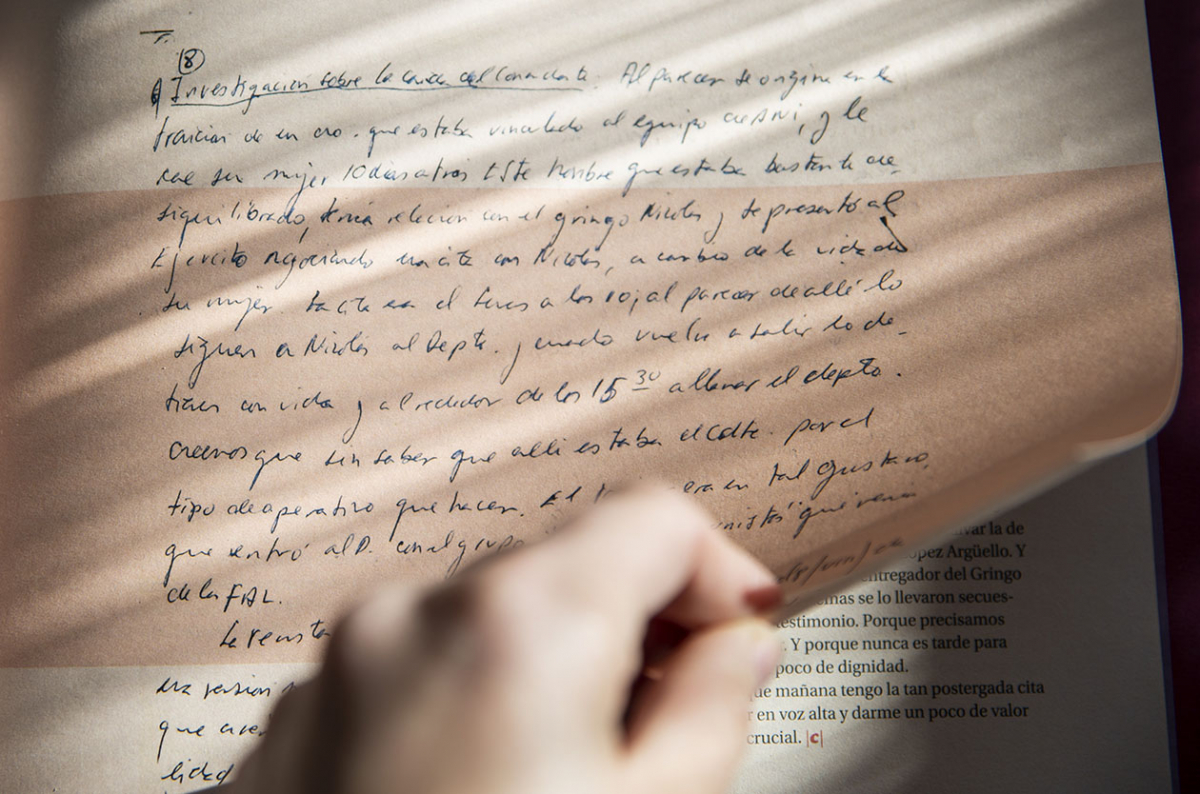 8
Investigacion sobre la caida del Comandante. Al parecer se origina en la
traicion de un cro. que estaba vinculado al equipo de , y le
cae su mujer 10 dias atras Este hombre que estaba bastante de-
siquilibrado, tenia relacion con el gringo Nicolas y se presentó al
Ejercito negociando una cita con Nicolas, a cambio de la vida de
su mujer. La cita era el lunes a las 10, al parecer de alli lo
siguen a Nicolás al Depto. y cuando vuelve a salir lo de-
tienen con vida y alrededor de las 15 30 allanar el depto.
creemos que sin saber que alli estaba el Cdte. por el
tipo de operativo que hacen. El era un tal Gustavo,
que entró al P. con el grupo que venia
de las FAL.
La
una version
que
lidad
var la de
opez Argüello. Y
entregador del Gringo
mas se lo llevaron secues-
testimonio. Porque precisamos
. Y porque nunca es tarde para
poco de dignidad.
ue mañana tengo la tan postergada cita
r en voz alta y darme un poco de valor
crucial. |c|